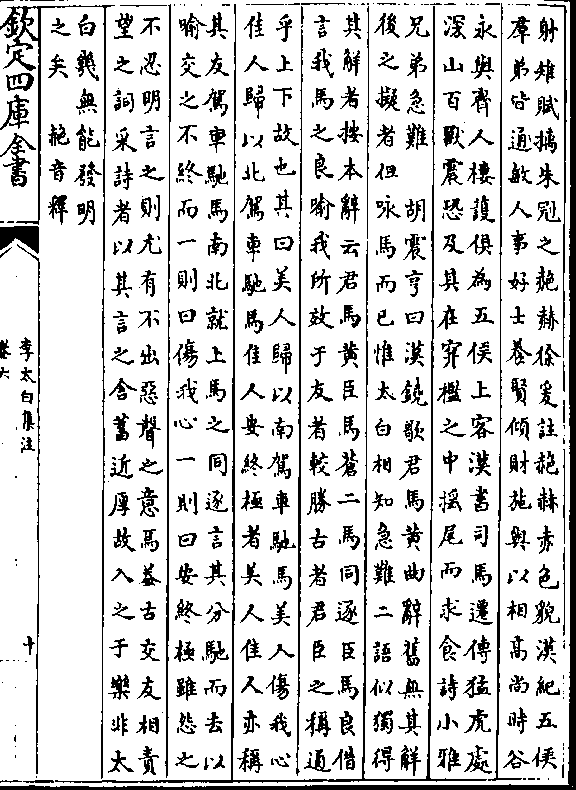 射雉賦摛朱冠之赩赫徐爰註赩赫赤色貌漢紀五侯
羣弟皆通敏人事好士養賢傾財施與以相高尚時谷
永與齊人樓護俱為五侯上客漢書司馬遷傳猛虎處
深山百獸震恐及其在穽檻之中搖尾而求食詩小雅
兄弟急難　胡震亨曰漢鐃歌君馬黃曲辭舊無其解
後之擬者但咏馬而已惟太白相知急難二語似獨得
其解者按本辭云君馬黃臣馬蒼二馬同逐臣馬良借
言我馬之良喻我所效于友者較勝古者君臣之稱通
乎上下故也其曰美人歸以南駕車馳馬美人傷我心
佳人歸以北駕車馳馬佳人安終極者美人佳人亦稱
其友駕車馳馬南北就上馬之同逐言其分馳而去以
喻交之不終而一則曰傷我心一則曰安終極雖怨之
不忍明言之則尤有不出惡聲之意焉蓋古交友相責
望之詞采詩者以其言之含蓄近厚故入之于樂非太
白幾無能發明
之矣　赩音釋
欽定四庫全書
李太白集注
卷六
十